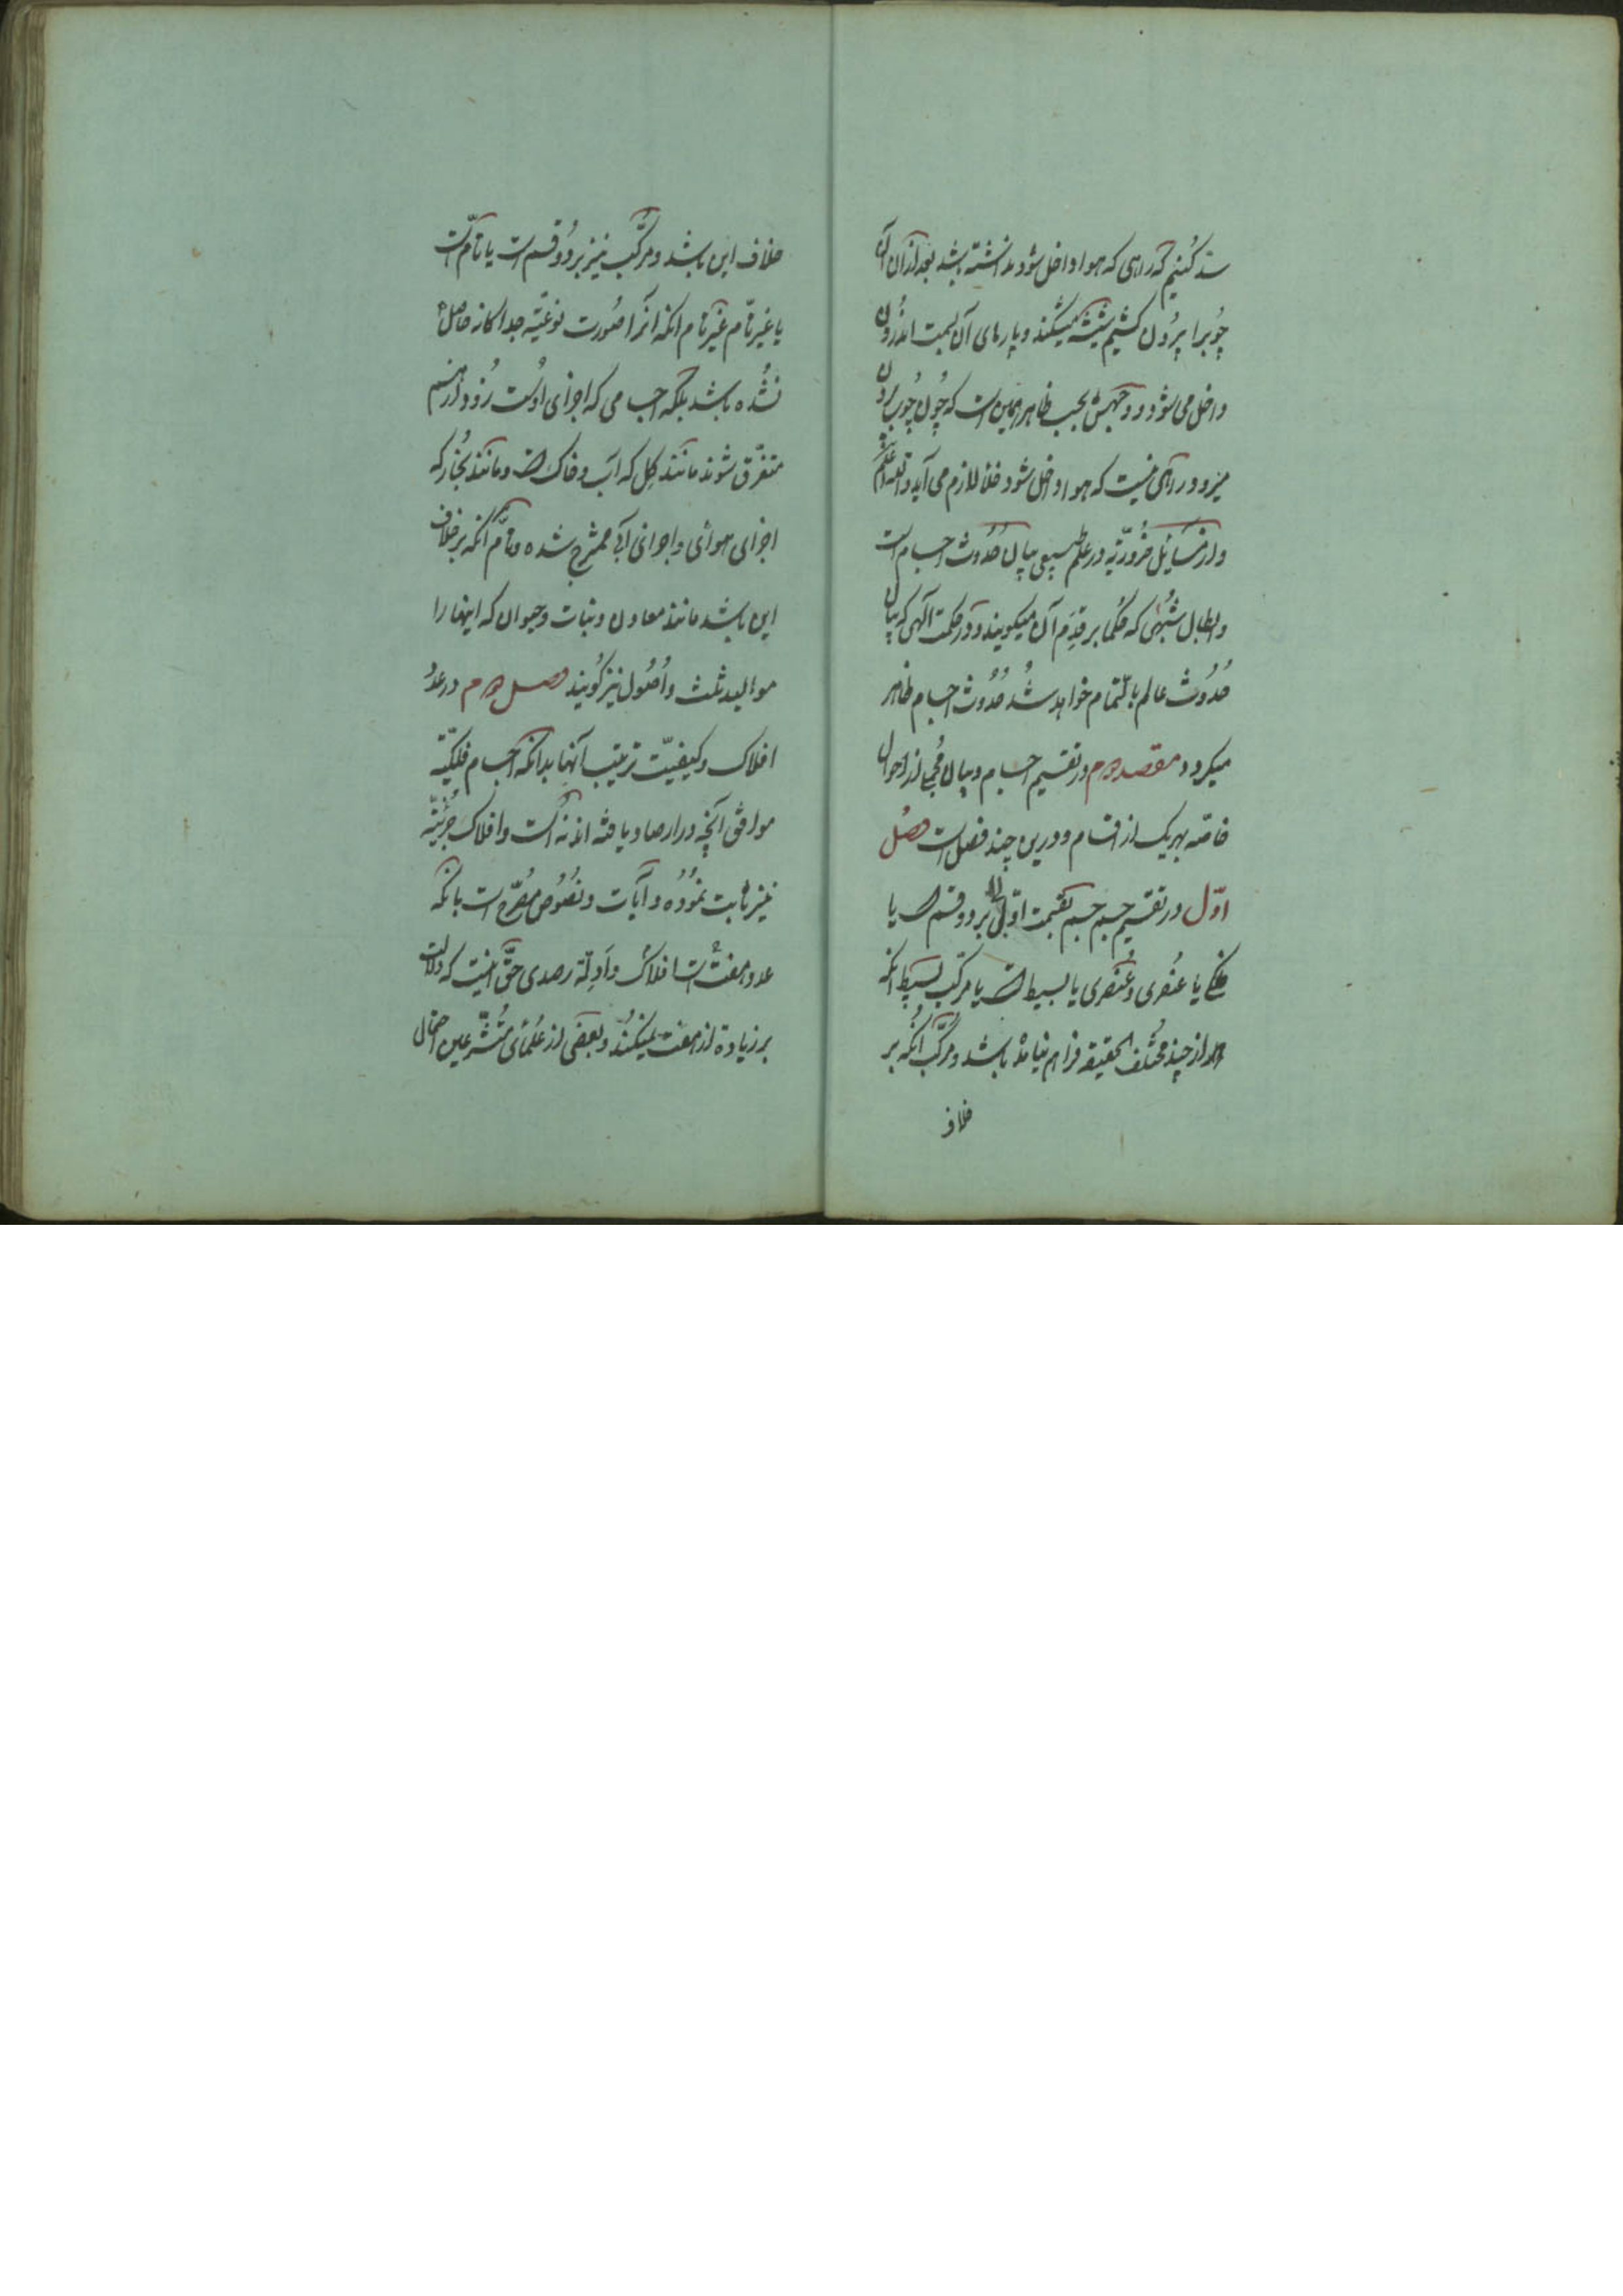 سد کنیم که راهی که هوا داخل شود نداشته باشد بعد از آن آن
چوبرا بیرون کشیم شیشه میشکند و پارهای آن بسمت اندرون
داخل می شود و وجهش بحسب ظاهر همین است که چون چوب بیرون
میرود و راهی نیست که هوا داخل شود خلأ لازم می آید والله اعلم
و از مسایل ضروریّه در علم طبیعی بیان حُدُوث اجسام است
و ابطال شبهٔی که حُکما بر قِدَم آن میکویند و در حکمت الٓهی که بیان
حُدُوث عالم بالتّمام خواهد شُد حُدُوث اجسام ظاهر
میکردد مقصد دوم در تقسیم اجسام و بیان مُجمل از احوال
خاصّه بهریک از اقسام و درین چند فصل است فصل
اوّل در تقسیم جسم جسم بقسمت اوّل بر دو قسم است یا
فلکی یا عُنصُری و عُنصُری یا بسیط است یا مرکّب بسیط آنکه
از چند مختلف الحقیقه فراهم نیامده باشد و مرکّب آنکه بر
خلاف
خلاف این باشد و مرکّب نیز بر دو قسم است یا تامّ است
یا غیر تامّ غیر تام آنکه آنرا صُورت نوعیّه جداکانه حاصل
نشُده باشد بلکه اجسامی که اجزای اوست زُود از هم
متفرّق شوند مانند کِل که آب و خاک است و مانند بُخار که
اجزای هوائی و اجزای آبی ممتزج شده و تامّ آنکه بر خلاف
این باشد مانند معادن و نبات و حیوان که اینها را
موالید ثلث و اُصُول نیز کویند فصل دوم در عدد
افلاک و کیفیّت ترتیب آنها بدانکه اجسام فلکیّه
موافق آنچه در ارصاد یافته اند نُه است و افلاک جزئیّه
نیز ثابت نمُودُه و آیات و نصُوص مُصرّح است بانکه
عدد هفت است افلاک و اَدِلّهٔ رصدی حقّ اینست که دلالت
بر زیاده از هفت نمیکنُد و بعضی از علمای متُشرّعین احتمال